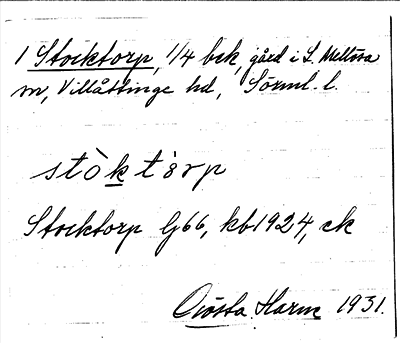 1 Stocktorp, 1/4 bck, gård i L. Mellösa
sn, Villåttinge hd, Sörml. l.
stòktȯrp
Stocktorp G66, kb 1924, ek
Gösta Harm 1931.